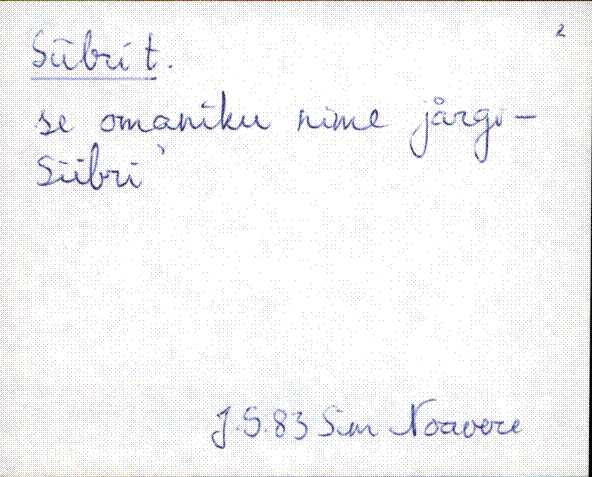 2
Sübri t.
se omaniku nime järgi –
Sübri`
J.S.83 Sim Noavere